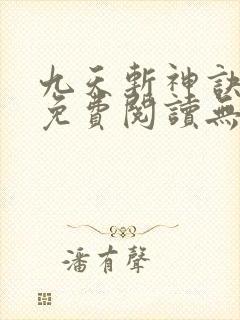 九天斬神訣
免費閱讀無
潘有聲